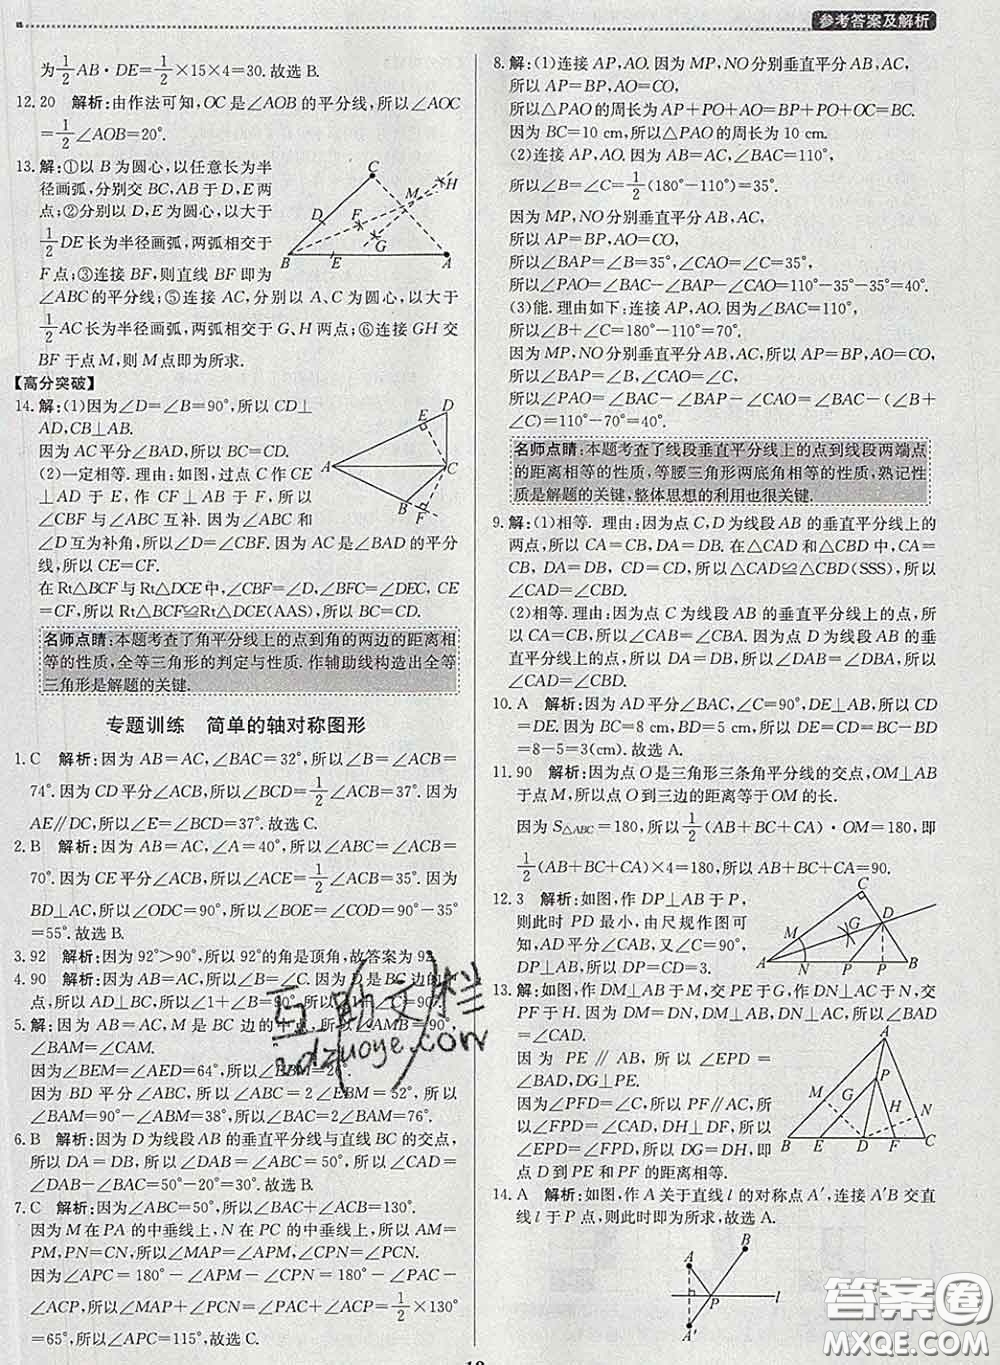 参考答案及解析
为1/2AB·DE=1/2×15×4=30.故选 B.
12.20 解析:由作法可知,OC是∠AOB的平分线,所以∠AOC
=1/2∠AOB=20°.
13.解:①以 B 为圆心,以任意长为半
径画弧,分别交 BC,AB 于 D,E 两
点;②分别以 D,E 为圆心,以大于
1/2DE长为半径画弧,两弧相交于
F 点;③连接 BF,则直线 BF 即为
∠ABC 的平分线;⑤连接 AC,分别以 A,C 为圆心,以大于
1/2AC长为半径画弧,两弧相交于 G,H 两点;⑥连接 GH 交
BF 于点 M,则 M 点即为所求.
C
H
M
D
F
G
B
E
A
【高分突破】
14.解:(1)因为∠D=∠B=90°,所以 CD⊥
AD,CB⊥AB.
因为 AC 平分∠BAD,所以 CD=CB.
(2)一定相等.理由:如图,过点 C 作 CE
⊥AD 于 E,CF⊥AB 于 F,所以
∠CBF 与∠ABC 互补.因为∠ABC 与
∠D 互为补角,所以∠CBF=∠D.因为 AC 是∠BAD 的平分
线,所以 CE=CF.
在 Rt△BCF 与 Rt△DCE 中,∠CBF=∠D=∠DEC, CE
=CF,所以 Rt△BCF≌Rt△DCE(AAS),所以 BC=DC.
D
E
A
C
B
F
名师点睛:本题考查了角平分线上的点到角的两边的距离相
等的性质,全等三角形的判定与性质.作辅助线构造出全等
三角形是解题的关键.
专题训练 简单的轴对称图形
1.C 解析:因为 AB=AC,∠BAC=32°,所以∠B=∠ACB=
74°.因为 CD 平分∠ACB,所以∠BCD=1/2∠ACB=37°.因为
AE∥DC,所以∠E=∠BCD=37°.故选 C.
2.B 解析:因为 AB=AC,∠A=40°,所以∠ABC=∠ACB=
70°.因为 CE 平分∠ACB,所以∠BCE=1/2∠ACB=35°.因为
BD⊥AC,所以∠ODC=90°,所以∠BOE=∠COD=90°-35°
=55°.故选 B.
3.92 解析:因为 92°>90°,所以 92°的角是顶角,故答案为 92.
4.90 解析:因为 AB=AC,所以∠B=∠C.因为 D 是 BC 边的中
点,所以 AD⊥BC,所以∠1+∠B=90°,所以∠1+∠C=90°.
5.解:因为 AB=AC,M 是 BC 边的中点,所以∠AMB=90°,
∠BAM=∠CAM.
因为∠BEM=∠AED=64°,所以∠EBM=26°.
因为 BD 平分∠ABC,所以∠ABM=2∠EBM=52°,所以
∠BAM=90°-∠ABM=38°,所以∠BAC=2∠BAM=76°.
6.B 解析:因为 D 为线段 AB 的垂直平分线与直线 BC 的交点,
所以 DA=DB,所以∠DAB=∠ABC=50°,所以∠CAD=
∠DAB-∠BAC=50°-20°=30°.故选 B.
7.C 解析:因为∠ABC=50°,所以∠BAC+∠ACB=130°.
因为 M 在 PA 的中垂线上,N 在 PC 的中垂线上,所以 AM=
PM,PN=CN,所以∠MAP=∠APM,∠CPN=∠PCN.
因为∠APC=180°-∠APM-∠CPN=180°-∠PAC-
∠ACP,所以∠MAP+∠PCN=∠PAC+∠ACP=1/2×130°
=65°,所以∠APC=115°.故选 C.
8.解:(1)连接 AP,AO.因为 MP,NO分别垂直平分 AB,AC,
所以 AP=BP,AO=CO,
所以△PAO的周长为 AP+PO+AO=BP+PO+OC=BC.
因为 BC=10 cm,所以△PAO 的周长为 10 cm.
(2)连接 AP,AO.因为 AB=AC,∠BAC=110°,
所以∠B=∠C=1/2(180°-110°)=35°.
因为 MP,NO 分别垂直平分 AB,AC,
所以 AP=BP,AO=CO,
所以∠BAP=∠B=35°,∠CAO=∠C=35°,
所以∠PAO=∠BAC-∠BAP-∠CAO=110°-35°-35°=40°.
(3)能.理由如下:连接 AP,AO.因为∠BAC=110°,
所以∠B+∠C=180°-110°=70°.
因为 MP,NO 分别垂直平分 AB,AC,所以 AP=BP,AO=CO,
所以∠BAP=∠B,∠CAO=∠C,
所以∠PAO=∠BAC-∠BAP-∠CAO=∠BAC-(∠B+
∠C)=110°-70°=40°.
名师点睛:本题考查了线段垂直平分线上的点到线段两端点
的距离相等的性质,等腰三角形两底角相等的性质,熟记性
质是解题的关键,整体思想的利用也很关键.
9.解:(1)相等.理由:因为点 C,D 为线段 AB 的垂直平分线上的
两点,所以 CA=CB,DA=DB.在△CAD 和△CBD 中,CA=
CB,DA=DB,CD=CD,所以△CAD≌△CBD(SSS),所以∠CAD
=∠CBD.
(2)相等.理由:因为点 C 为线段 AB 的垂直平分线上的点,
所以 DA=DB,所以∠DAB=∠DBA,所以∠CAD=∠CBD.
10.A 解析:因为 AD 平分∠BAC,∠C=90°,DE⊥AB,所以 CD
=DE.因为 BC=8 cm,BD=5 cm,所以 DE=CD=BC-BD
=8-5=3(cm).故选 A.
11.90 解析:因为点 O 是三角形三条角平分线的交点,OM⊥AB
于点 M,所以点 O 到三边的距离等于 OM 的长.
因为 S△ABC=180,所以1/2(AB+BC+CA)·OM=180,即
1/2(AB+BC+CA)×4=180,所以 AB+BC+CA=90.
12.3 解析:如图,作 DP⊥AB 于 P,
则此时 PD 最小,由尺规作图可
知,AD 平分∠CAB,又∠C=90°,
DP⊥AB,所以 DP=CD=3.
C
D
G
M
A
N
P
P
B
13.解:如图,作 DM⊥AB 于 M,交 PE 于 G,作 DN⊥AC 于 N,交
PF 于 H.因为 DM=DN,DM⊥AB,DN⊥AC,所以∠BAD
=∠CAD.
因为 PE∥AB,所以∠EPD=
∠BAD,DG⊥PE.
因为∠PFD=∠C,所以 PF∥AC,所以
∠FPD=∠CAD,DH⊥DF,所以
∠EPD=∠FPD,所以 DG=DH,即
点 D 到 PE 和 PF 的距离相等.
A
P
M
G
H
N
B
E
D
F
C
14.A 解析:如图,作 A 关于直线 l 的对称点 A′,连接 A′B 交直
线 l 于 P 点,则此时即为所求,故选 A.
B
A
P
l
A′
互助文栏
hdzuoye.com
答案圈
MXQE.COM